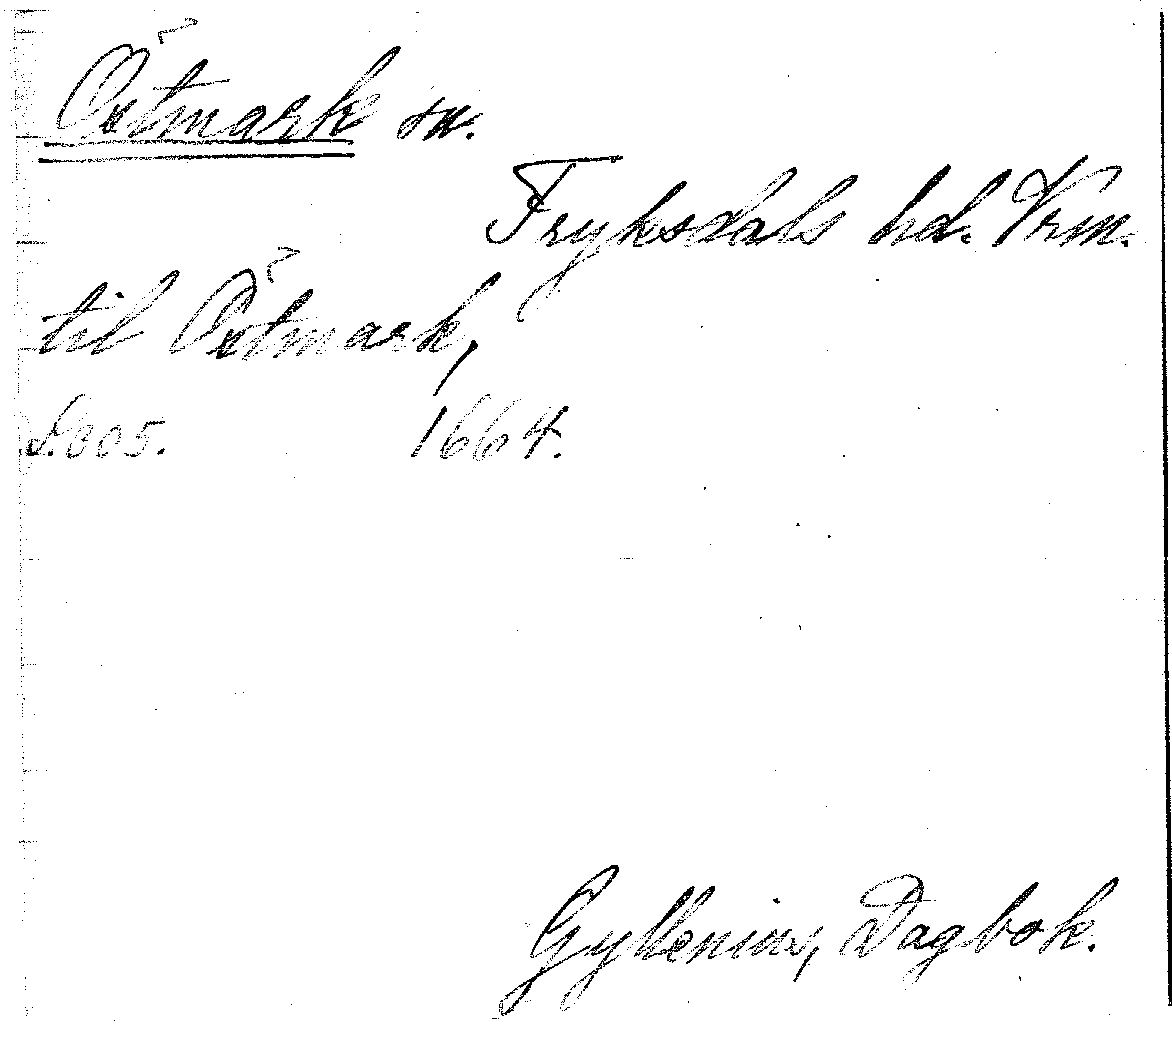 Östmark sn.
Fryksdals hd. Vrm.
til Östmark,
S. 305. 1664.
Gyllenius, Dagbok.